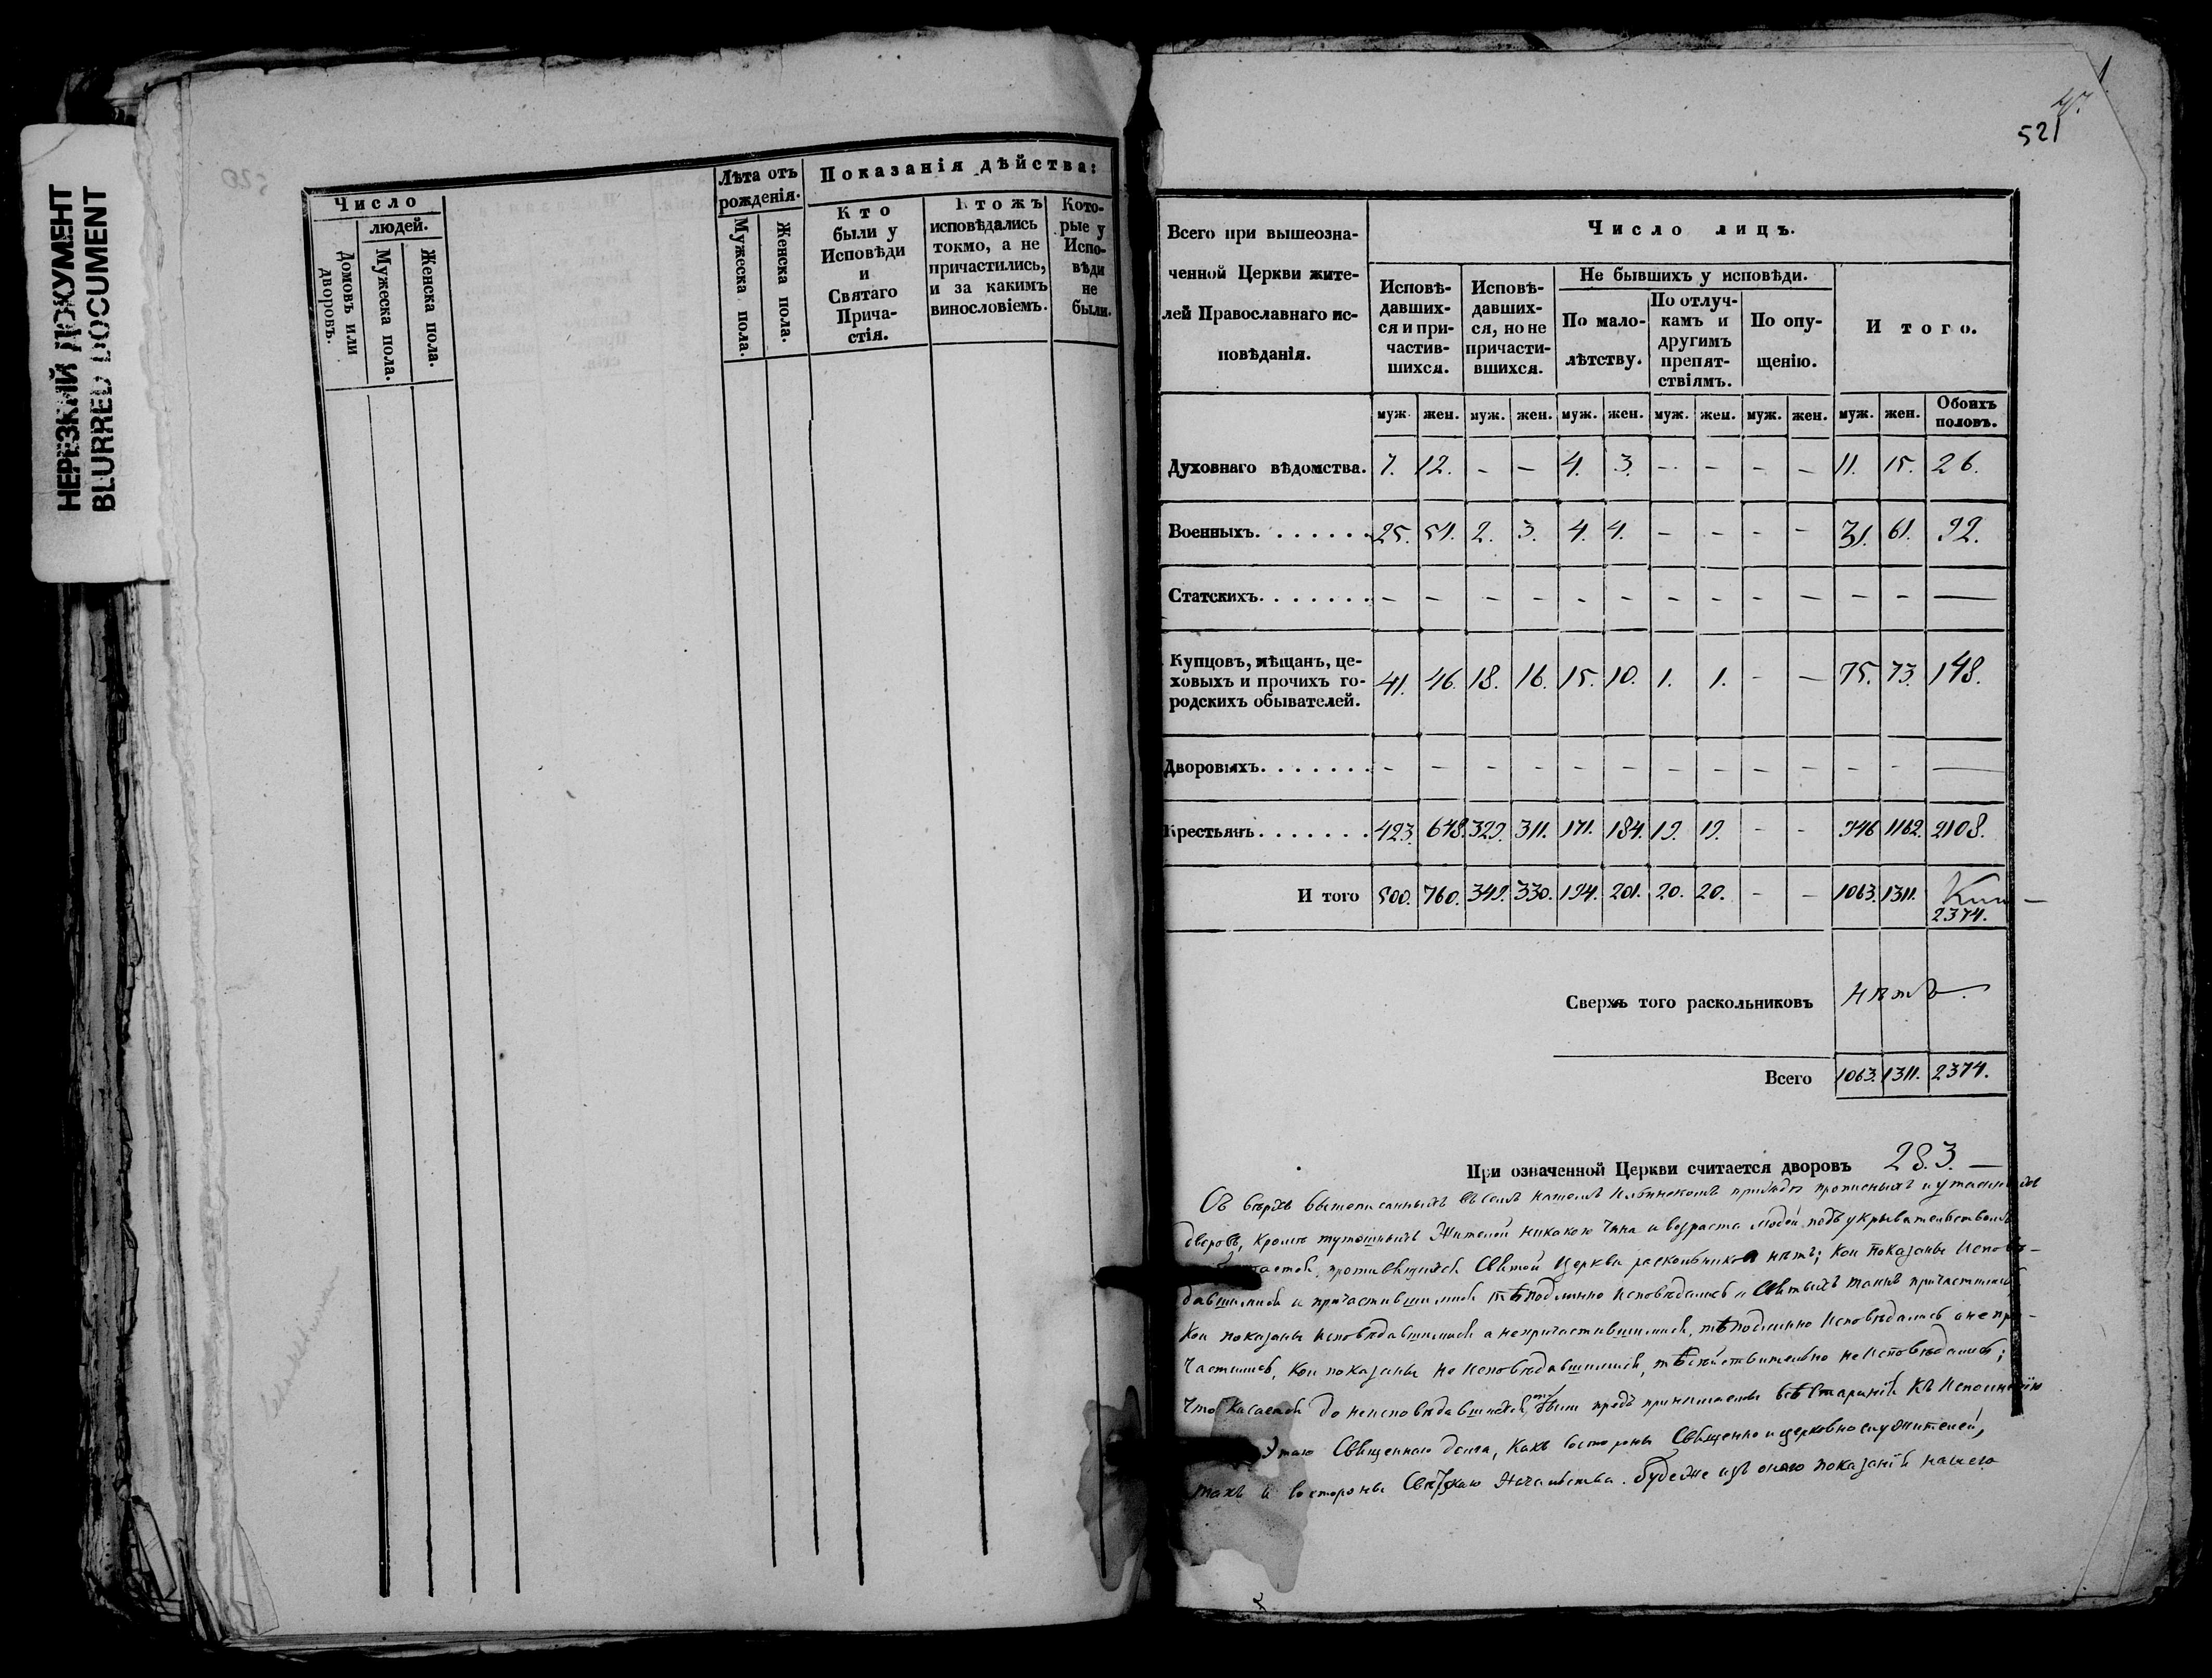 НЕРЕЗКИЙ ДОКУМЕНТ
BLURRED DOCUMENT
520
Число
людей.
Домовъ или дворовъ.
Мужеска пола.
Женска пола.
Лѣта отъ рожденія.
Мужеска пола.
Женска пола.
Показанія дѣйства:
Кто
были у
Исповѣди
и
Святаго
Прича-
стія.
Ктожъ
исповѣдались
токмо, а не
причастились,
и за какимъ
винословіемъ.
Кото-
рые у
Испо-
вѣди
не
были.
521
Всего при вышеозна-
ченной Церкви жите-
лей Православнаго ис-
повѣданія.
Число лицъ.
Исповѣ-
давших-
ся и при-
частив-
шихся.
Исповѣ-
давших-
ся, но не
причасти-
вшихся.
Не бывшихъ у исповѣди.
По мало-
лѣтству.
По отлуч-
камъ и
другимъ
препят-
ствіямъ.
По опу-
щенію.
И того.
муж. жен. муж. жен. муж. жен. муж. жен. муж. жен. муж. жен. Обоихъ половъ.
Духовнаго вѣдомства. 7. 12. - - 4. 3. - - - - 11. 15. 26.
Военныхъ. . . . . . . 25. 54. 2. 3. 4. 4. - - - - 31. 61. 92.
Статскихъ. . . . . . . - - - - - - - - - - - - —
Купцовъ, мѣщанъ, це-
ховыхъ и прочихъ го-
родскихъ обывателей. 41. 46. 18. 16. 15. 10. 1. 1. - - 75. 73. 148.
Дворовыхъ. . . . . . . - - - - - - - - - - - - —
Крестьянъ . . . . . . . 423. 648. 329. 311. 171. 184. 19. 19. - - 946 1162. 2108.
И того 500. 760. 349. 330. 194. 201. 20. 20. - - 1063. 1311. 2374.
Сверхъ того раскольниковъ нѣтъ.
Всего 1063. 1311. 2374.
При означенной Церкви считается дворовъ 283. —
Съ верхъ вышеписанныхъ въ семъ нашемъ приходѣ прописныхъ и
дворовъ, кроме жителей никакого чина и возраста людей подъ укрывательствомъ
противящихся Святой Церкви раскольниковъ нѣтъ; Кои показаны Исповѣ-
давшимися и причастившимися тѣ подлинно исповѣдались и Святыхъ таинъ причастились
Кои показаны исповѣдавшимися а непричастившимися, тѣ подлинно Исповѣдались а не при-
частились, Кои показаны не исповѣдавшимися, тѣ дѣйствительно не исповѣдались;
Что касается до неисповѣдавшихся, предъ все старанія къ Исполненію
этаго Священнаго долга, Какъ состороны Священно и церковнослужителей,
такъ и состороны Свѣтскаго Начальства. Будеже изъ онаго показанія нашего